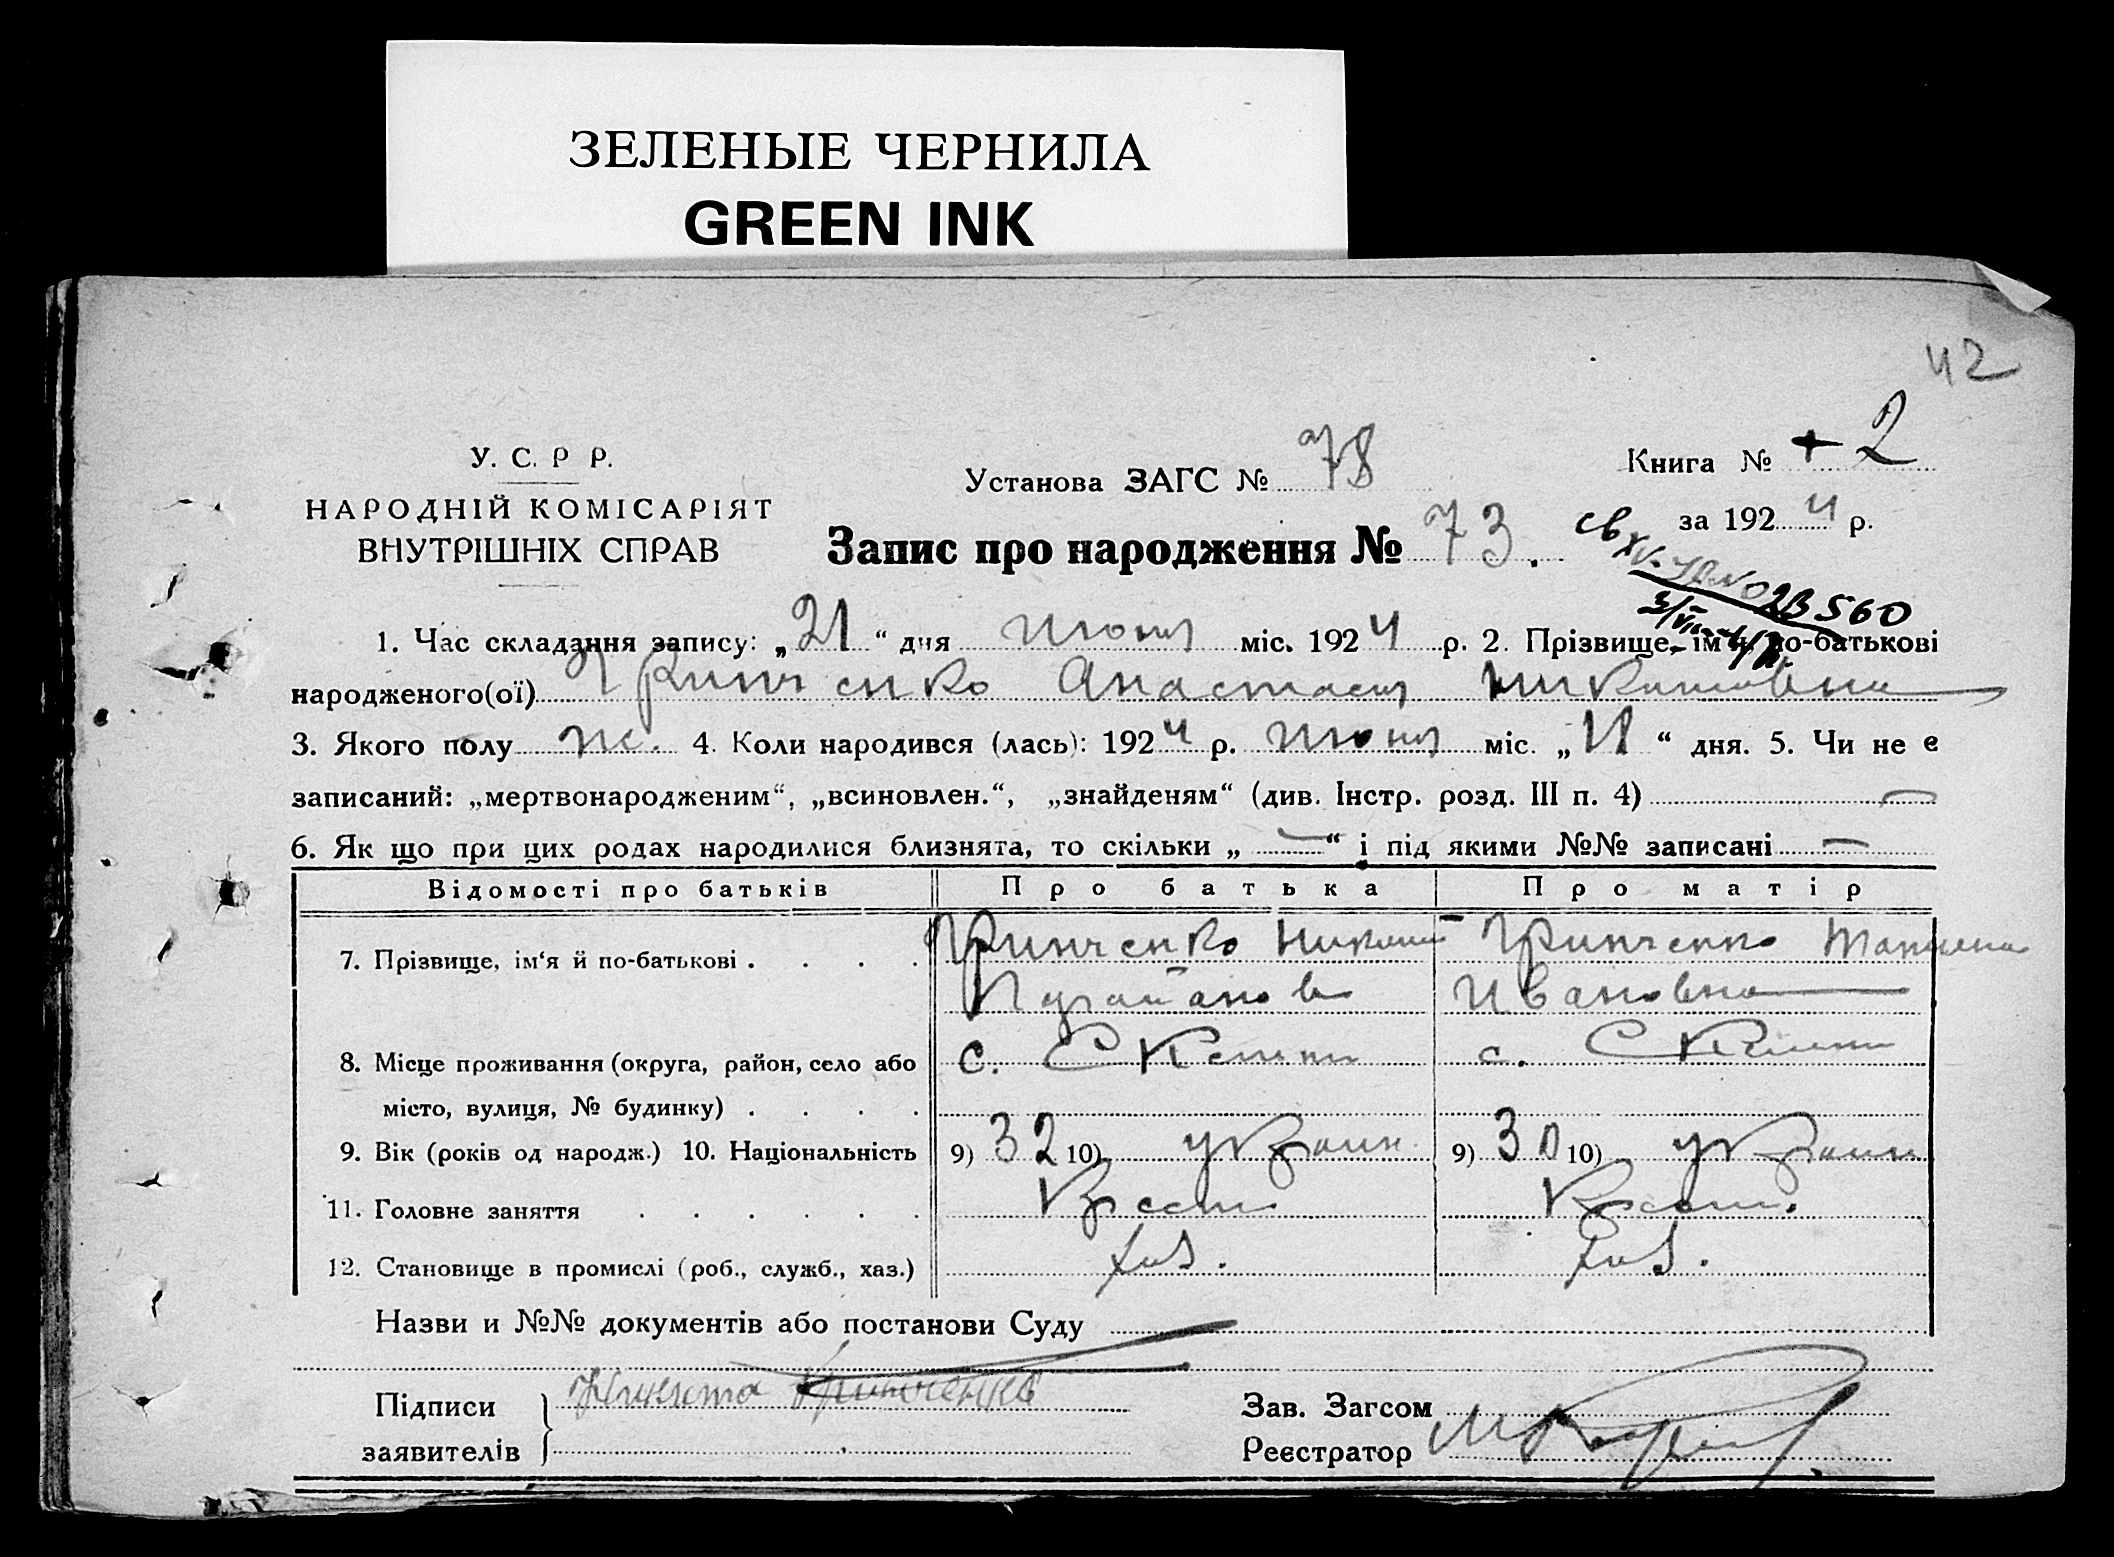 ЗЕЛЕНЫЕ ЧЕРНИЛА
GREEN INK
42
У. С. Р Р.
НАРОДНІЙ КОМІСАРІЯТ
ВНУТРІШНІХ СПРАВ
Установа ЗАГС № 78
Книга № 2
за 1924 р.
Запис про народження № 73.
св
023560
1. Час складання запису: „21“ дня июня міс. 1924 р. 2. Прізвище, ім'я, по-батькові
народженого(ої) Гринченко Анастасия Никитовна
3. Якого полу ж. 4. Коли народився (лась): 1924 р. июня міс. „ “ дня. 5. Чи не є
записаний: „мертвонародженим“, „всиновлен.“, „знайденям“ (див. Інстр. розд. III п. 4) —
6. Як що при цих родах народилися близнята, то скільки „—“ і під якими №№ записані —
Відомості про батьків Про батька Про матір
7. Прізвище, ім‘я й по-батькові . . . . Гринченко Никита Гринченко Татьяна
Ивановна
8. Місце проживання (округа, район, село або с. Скельки с. Скельки
місто, вулиця, № будинку) . . . .
9. Вік (років од народж.) 10. Національність 9) 32 10) украин. 9) 30 10) украин
11. Головне заняття . . . . . . Крест. Крест.
12. Становище в промислі (роб., служб., хаз.) хаз. хаз.
Назви и №№ документів або постанови Суду
Підписи Никита Гринченко
заявителів
Зав. Загсом
Реєстратор